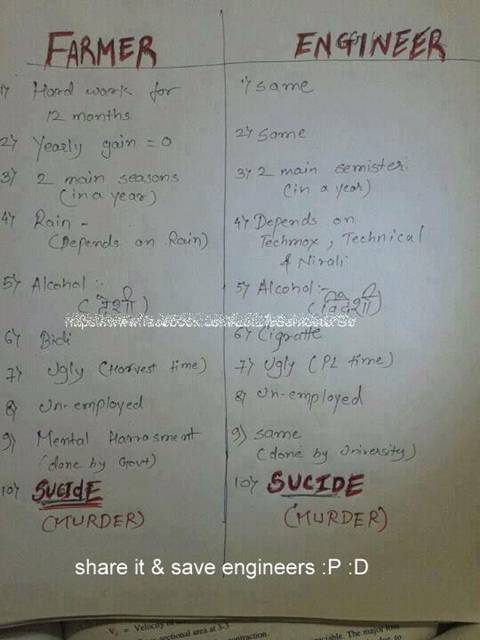 FARMER
ENGINEER
1) Hard work for
12 months
1) same
2) Yearly gain = 0
2) Same
3) 2 main seasons
(in a year)
3) 2 main semister
(in a year)
4) Rain -
(Depends on Rain)
4) Depends on
Techmax, Technical
& Nirali
5) Alcohol :-
(देशी)
5) Alcohol:-
(विदेशी)
6) Bidi
6) Cigratte
7) Ugly (Harvest time)
7) Ugly (PL time)
8) Un-employed
8) Un-employed
9) Mental Harrasment
(done by Govt)
9) same
(done by University)
10) SUCIDE
(MURDER)
10) SUCIDE
(MURDER)
share it & save engineers :P :D